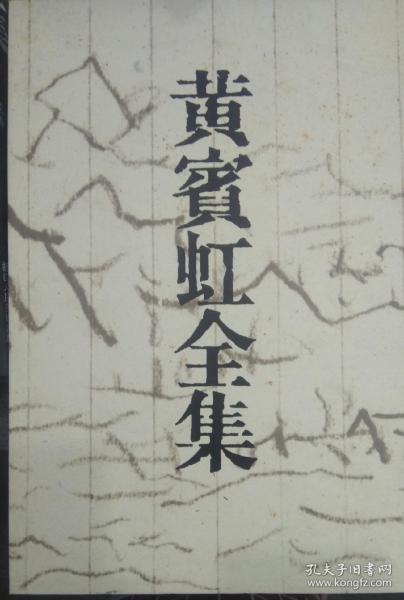 黄賓虹全集
孔夫子旧书网
www.kongfz.com